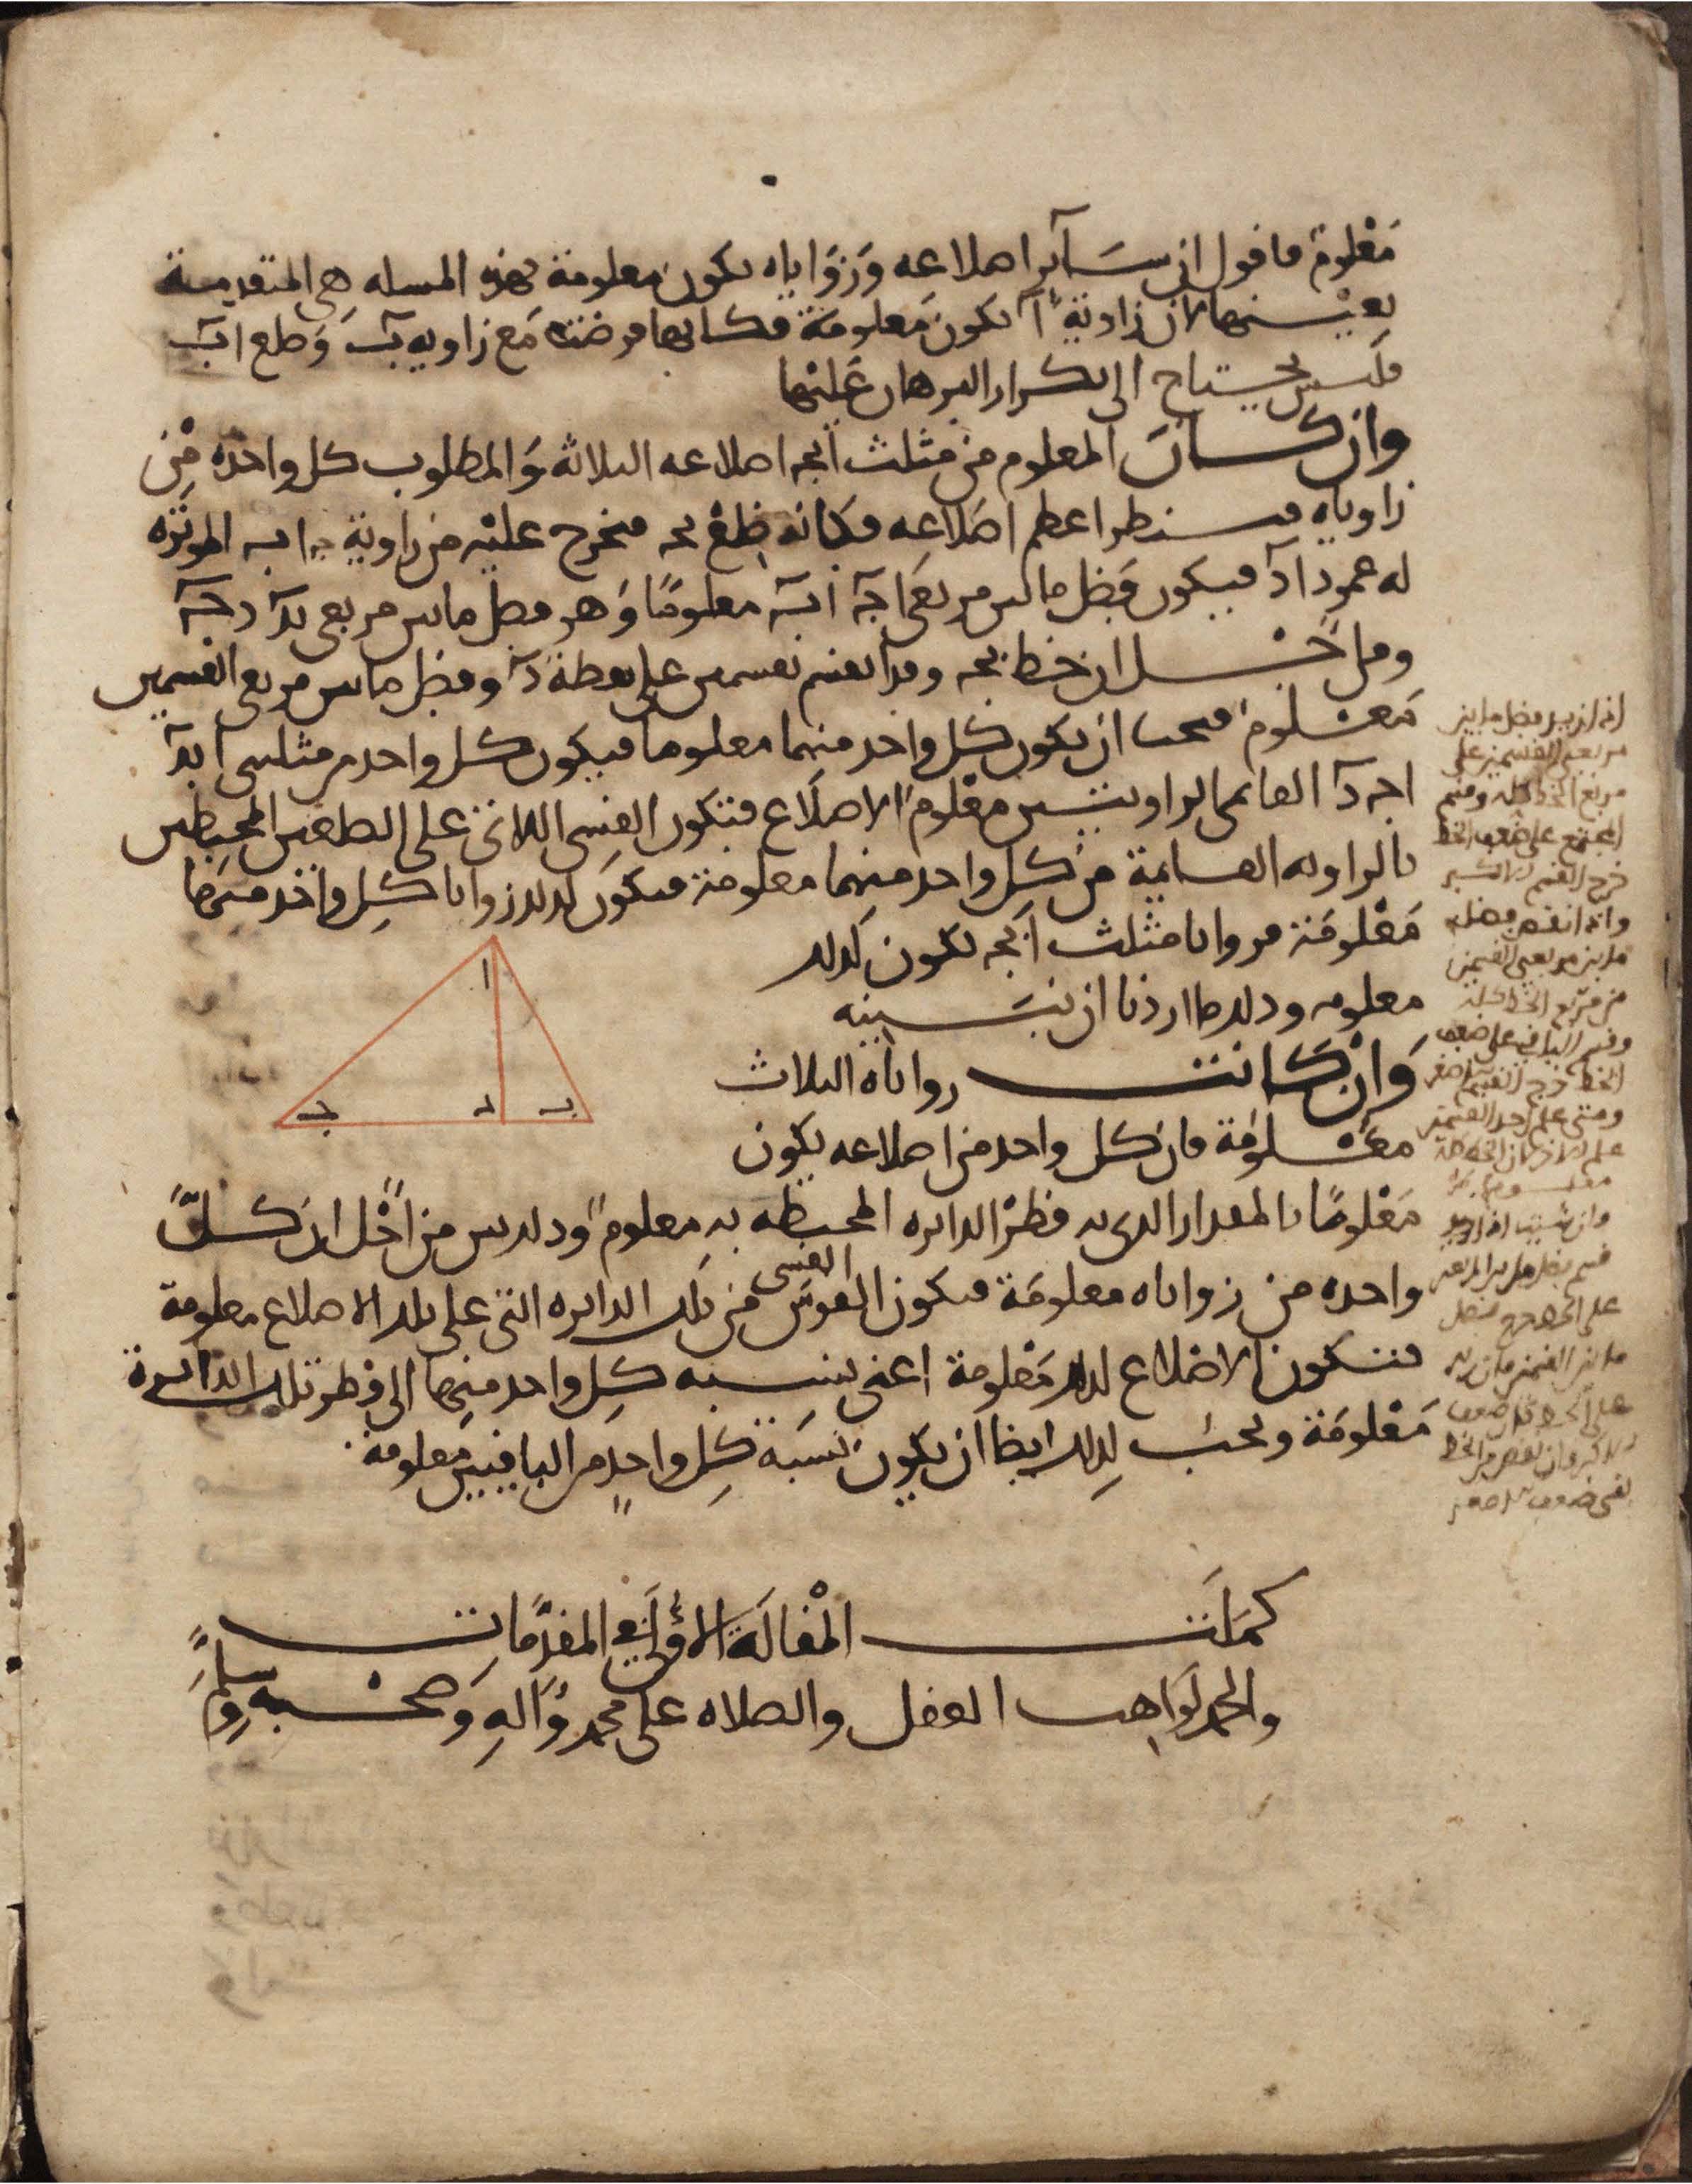 معلوم فاقول ان سآير اضلاعه وزواياه تكون معلومة بهذه المسله هي المتقدمة
بعينها لان زاوية آ تكون معلومة فكانها فرضت مع زاويه ب وضلع اب
فليس يحتاج الى تكرار البرهان عليها
وان كان المعلوم من مثلث ابج اضلاعه الثلاثة والمطلوب كل واحدة من
زاوياه فسننظر اعظم اضلاعه فكانه ضلع بج فنخرج عليه من زاوية المؤترة
له عمود اد فيكون فضل ما بين مربعي اج اب معلومًا وهو فضل ما بين مربعي بد دج
ومن اجل ان خط بج وقد انقسم بقسمين على نقطة د وفضل ما بين مربعي القسمين
معلوم فيجب ان يكون كل واحد منهما معلوما فيكون كل واحد من مثلثي ابد
اجد القائمي الزاويتين معلوم الاضلاع فتكون القسي اللاتي على الضلعين المحيطين
بالزاويه القايمة من كل واحد منهما معلومة فتكون كذلك زوايا كل واحد منها
معلومة فزوايا مثلث ابج تكون كذلك
معلومه وذلك ما اردنا ان نبينه
وان كانت زواياه الثلاث
معلومة فان كل واحد من اضلاعه يكون
معلومًا بالمقدار الذي به قطر الدايره المحيطه به معلوم وذلك بين من اجل ان كل
واحده من زواياه معلومة فتكون القوس من تلك الدايره التي على تلك الاضلاع معلومة
القسي
فتكون الاضلاع كذلك معلومة اعني نسبه كل واحد منها الى قطر تلك الدائرة
معلومة ويجب لذلك ايضا ان يكون نسبة كل واحد من الباقيين معلومة
ا
ج
د
ب
اذا زيد فضل ما بين
مربعي القسمين على
مربع الخط كله وقسم
المجتمع على ضعف الخط
خرج القسم الاكبر
واذا نقص فضل
ما بين مربعي القسمين
من مربع الخط كله
وقسم الباقي على ضعف
الخط خرج القسم الاصغر
ومتى علم احد القسمين
علم الاخر لان الخط كله
وان شيت
قسم فضل ما بين المربعين
على الخط خرج فضل
ما بين القسمين فان زيد
على الخط كان ضعف
الاكبر وان نقص من الخط
بقي ضعف الاصغر
كملت المقالة الاولى في المقدمات
والحمد لواهب العقل والصلاه على محمد وآله وصحبه وسلم